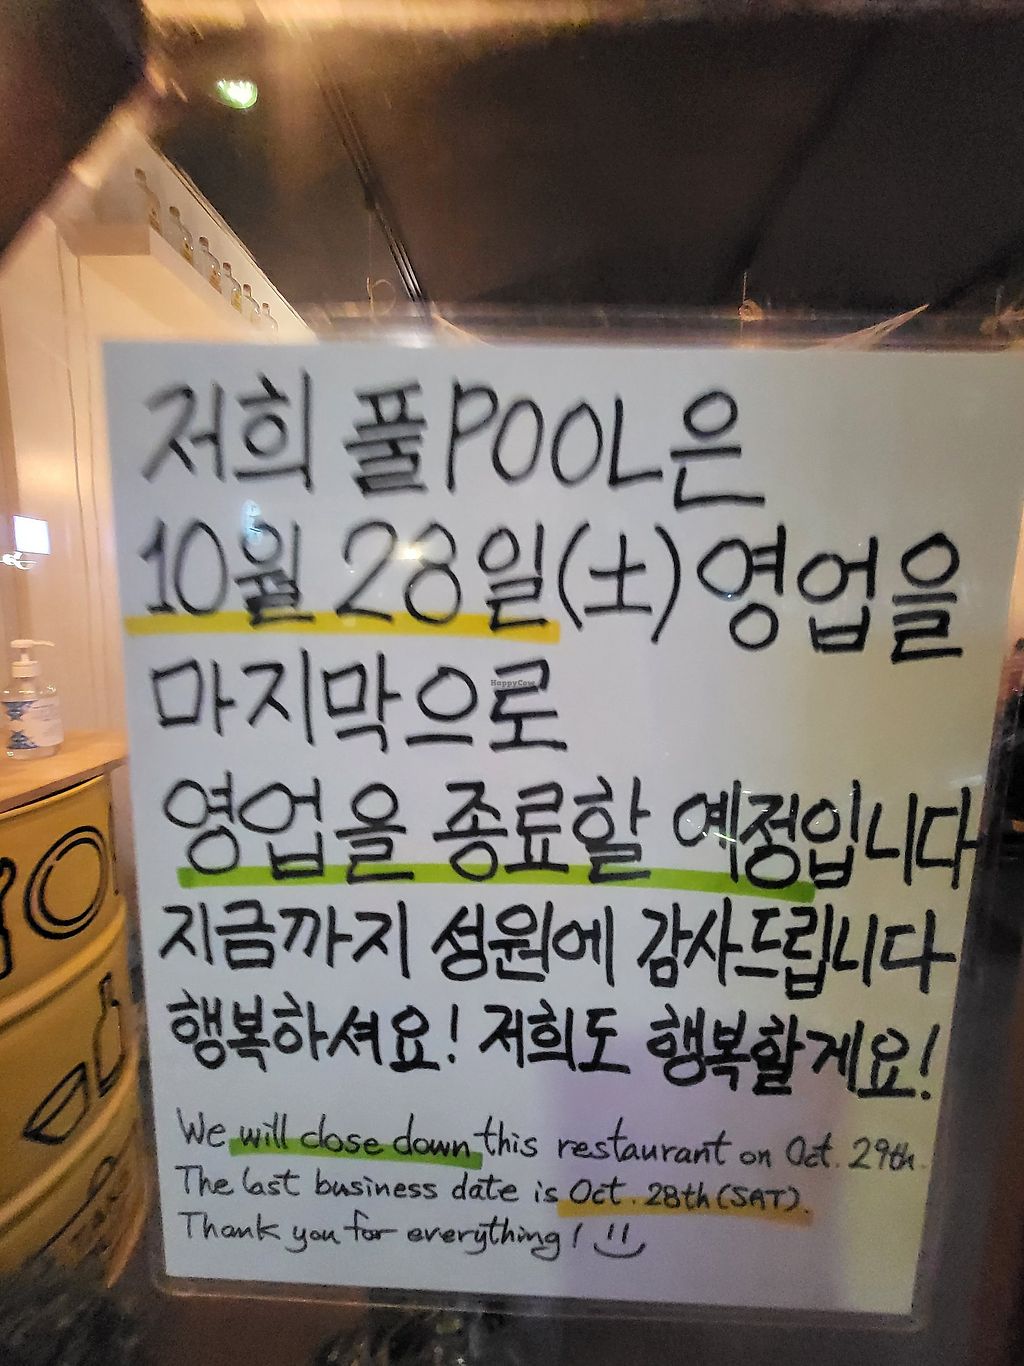 저희 풀POOL은
10월 28일(土) 영업을
마지막으로
영업을 종료할 예정입니다
지금까지 성원에 감사드립니다
행복하셔요! 저희도 행복할게요!
We will close down this restaurant on Oct. 29th.
The last business date is Oct. 28th (SAT).
Thank you for everything!
HappyCow